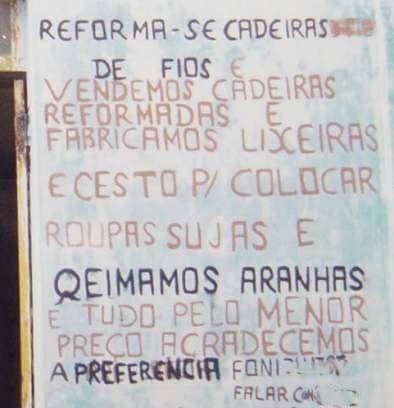 REFORMA-SE CADEIRAS
DE FIOS E
VENDEMOS CADEIRAS
REFORMADAS E
FABRICAMOS LIXEIRAS
E CESTO P/ COLOCAR
ROUPAS SUJAS E
QEIMAMOS ARANHAS
E TUDO PELO MENOR
PREÇO AGRADECEMOS
A PREFERENCIA
FALAR